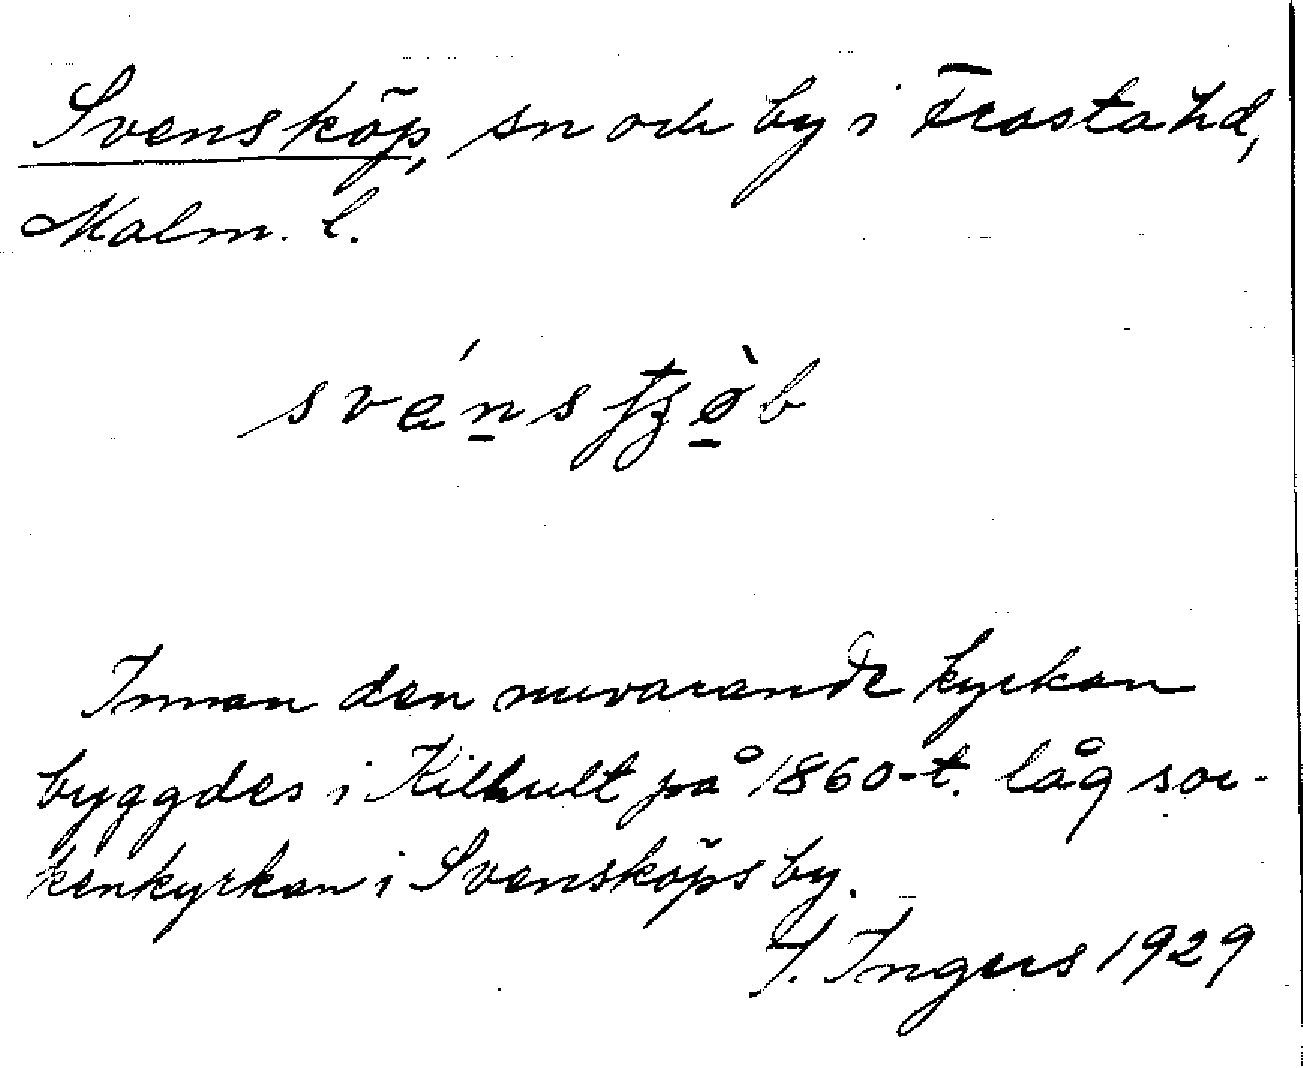 Svensköp, sn och by i Frosta hd,
Malm. l.
svénstʒø̀b
Innan den nuvarande kyrkan
byggdes i Killhult på 1860-t. låg soc-
kenkyrkan i Svensköps by.
I. Ingers 1929